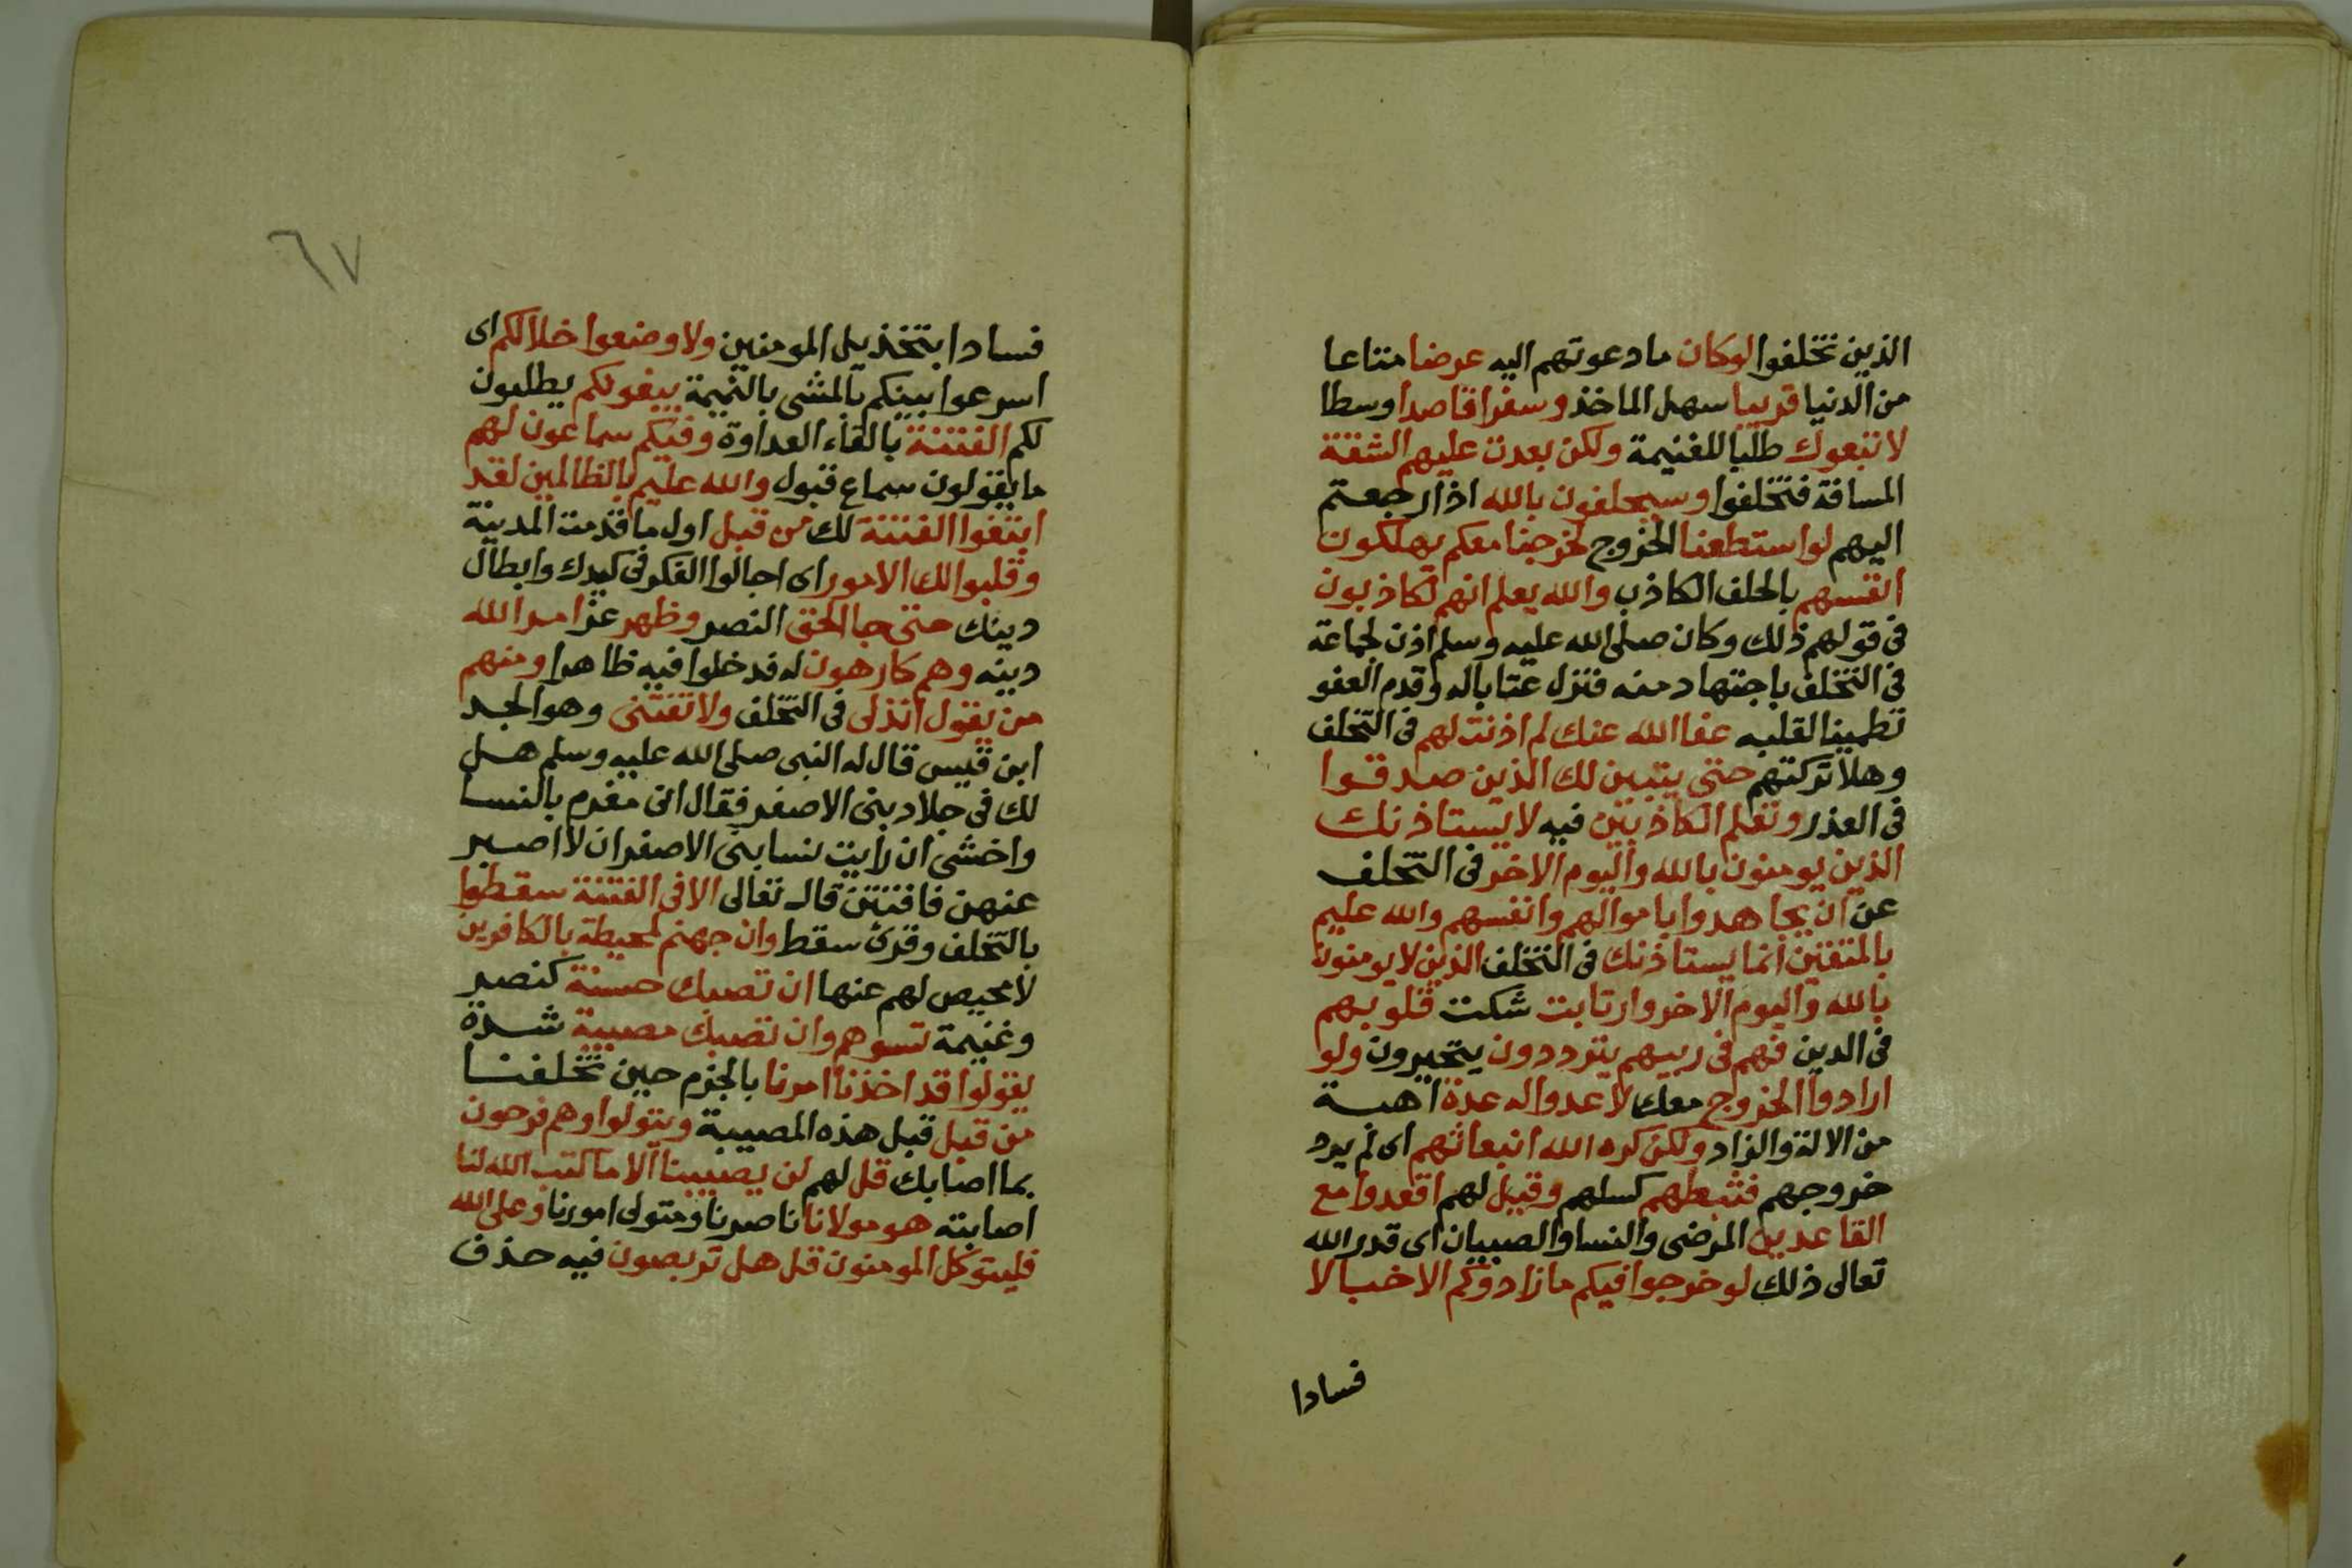 الذين تخلفوا لو كان ما دعوتهم اليه عرضا متاعا
من الدنيا قريبا سهل الماخذ وسفرا قاصدا وسطا
لاتبعوك طلبا للغنيمة ولكن بعدت عليهم الشقة
المسافة فتخلفوا وسيحلفون بالله اذا رجعتم
اليهم لو استطعنا الخروج لخرجنا معكم يهلكون
انفسهم بالحلف الكاذب والله يعلم انهم لكاذبون
فى قولهم ذلك وكان صلى الله عليه وسلم اذن لجماعة
فى التخلف باجتهاد منه فنزل عتابا له وقدم العفو
تطمينا لقلبه عفا الله عنك لم اذنت لهم فى التخلف
وهلا تركتهم حتى يتبين لك الذين صدقوا
فى العذر وتعلم الكاذبين فيه لا يستاذنك
الذين يومنون بالله واليوم الاخر فى التخلف
عن ان يجاهدوا باموالهم وانفسهم والله عليم
بالمتقين انما يستاذنك فى التخلف الذين لا يومنون
بالله واليوم الاخر وارتابت شكت قلوبهم
فى الدين فهم فى ريبهم يترددون يتحيرون ولو
ارادوا الخروج معك لاعدوا له عدة اهبة
من الالة والزاد ولكن كره الله انبعاثهم اى لم يرد
خروجهم فثبطهم كسلهم وقيل لهم اقعدوا مع
القاعدين المرضى والنسا والصبيان اى قدر الله
تعالى ذلك لو خرجوا فيكم ما زادوكم الا خبالا
فسادا
٦٧
فسادا بتخذيل المومنين ولا وضعوا خلالكم اى
اسرعوا بينكم بالمشى بالنميمة يبغونكم يطلبون
لكم الفتنة بالقاء العداوة وفيكم سماعون لهم
ما يقولون سماع قبول والله عليم بالظالمين لقد
ابتغوا الفتنة لك من قبل اول ما قدمت المدينة
وقلبوا لك الامور اى اجالوا الفكر فى كيدك وابطال
دينك حتى جا الحق النصر وظهر عز امر الله
دينه وهم كارهون له فدخلوا فيه ظاهرا ومنهم
من يقول ائذن لى فى التخلف ولا تفتنى وهو الجد
ابن قيس قال له النبى صلى الله عليه وسلم هل
لك فى جلاد بنى الاصفر فقال انى مغرم بالنسا
واخشى ان رايت نسا بنى الاصفر ان لا اصبر
عنهن فافتتن قال تعالى الا فى الفتنة سقطوا
بالتخلف وقرئ سقط وان جهنم لمحيطة بالكافرين
لا محيص لهم عنها ان تصبك حسنة كنصر
وغنيمة تسوهم وان تصبك مصيبة شدة
يقولوا قد اخذنا امرنا بالجزم حين تخلفنا
من قبل قبل هذه المصيبة ويتولوا وهم فرحون
بما اصابك قل لهم لن يصيبنا الا ما كتب الله لنا
اصابته هو مولانا ناصرنا ومتولى امورنا وعلى الله
فليتوكل المومنون قل هل تربصون فيه حذف